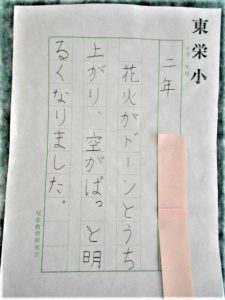 東栄小
二年
花火がドーンとうち
上がり、空がぱっと明
るくなりました。